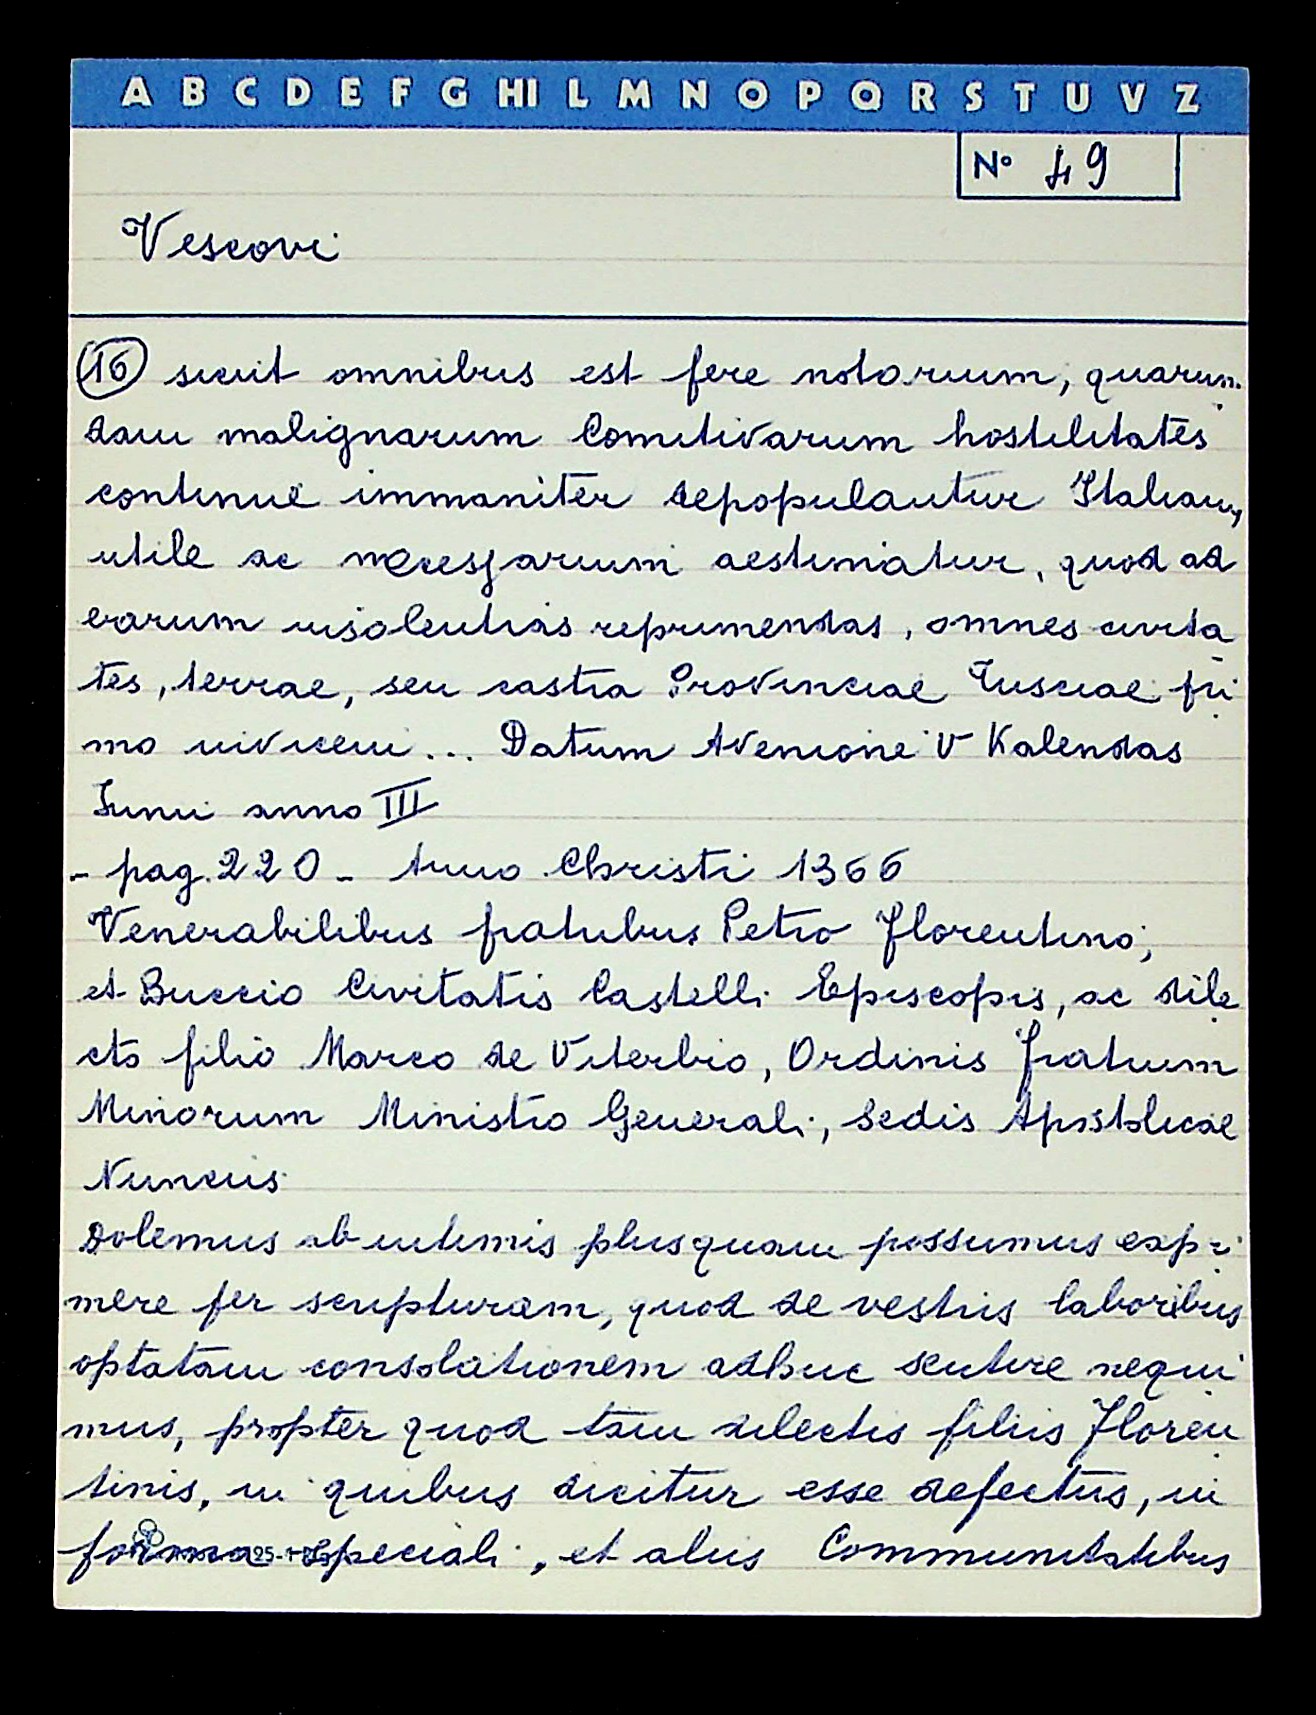 A B C D E F G HI L M N O P Q R S T U V Z
Nº 49
Vescovi
16 sicuit omnibus est fere notorium, quarun
dam malignarum Comitivarum hostilitates
continuë immaniter depopulantur Italiam,
utile ac necessarium aestimatur, quod ad
earum insolentias reprimendas, omnes civita
tes, terrae, seu castra Provinciae Tusciae pri
mo invicem... Datum Avenione V Kalendas
Iunii anno III
- pag. 220 - Anno Christi 1366
Venerabilibus fratribus Petro Florentino,
et Buccio Civitatis Castelli Episcopis, ac dile
cto filio Marco de Viterbio, Ordinis fratrum
Minorum Ministro Generali, Sedis Apostolicae
Nunciis
Dolemus ab intimis plusquam possumus expri
mere per scripturam, quod de vestris laboribus
optatam consolationem adhuc sentire nequi
mus, propter quod tam dilectis filiis Floren
tinis, in quibus dicitur esse defectus, in
forma speciali, et aliis Communitatibus